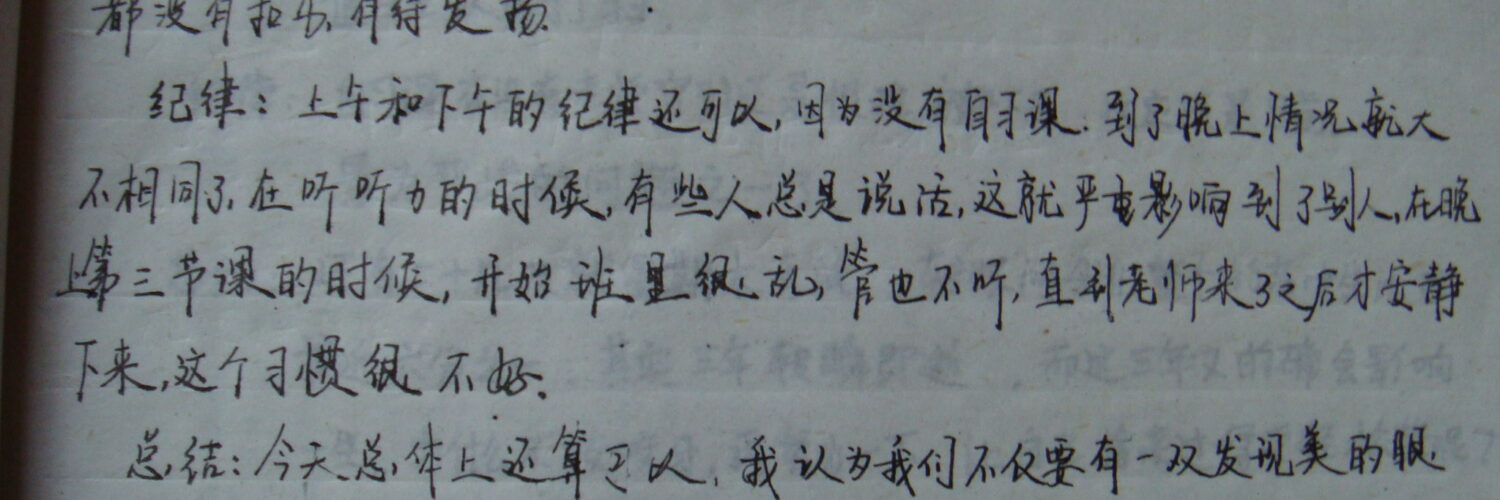 都没有扣分,有待发扬.
纪律：上午和下午的纪律还可以,因为没有自习课.到了晚上情况就大
不相同了,在听听力的时候,有些人总是说话,这就严重影响到了别人,在晚
上第三节课的时候,开始班里很乱,管也不听,直到老师来了之后才安静
下来,这个习惯很不好.
总结：今天总体上还算可以,我认为我们不仅要有一双发现美的眼